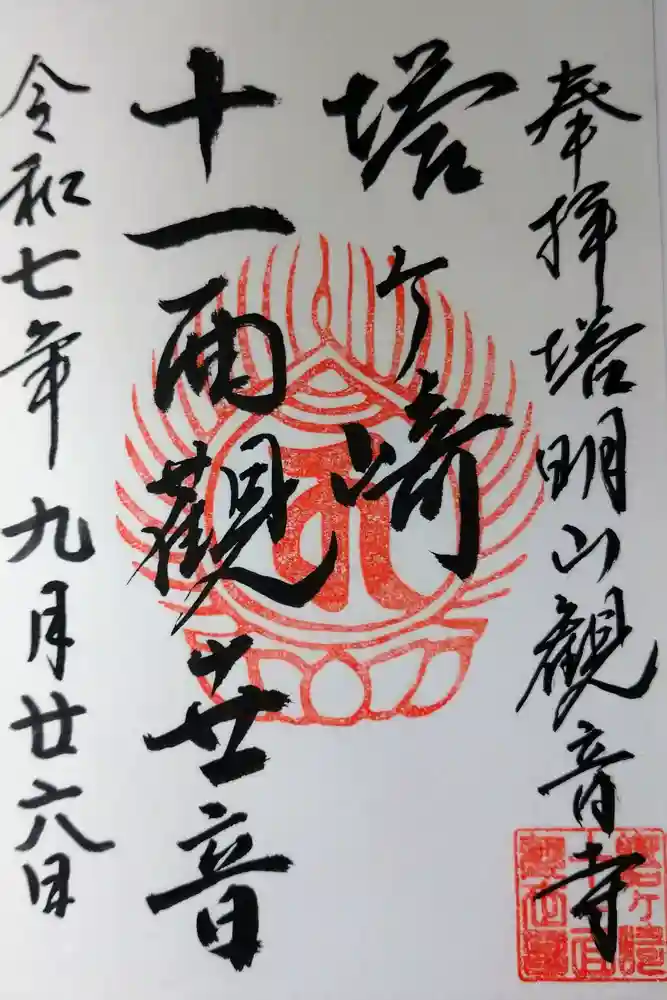 奉拝塔明山観音寺
塔ヶ崎
十一面觀世音
令和七年九月廿六日